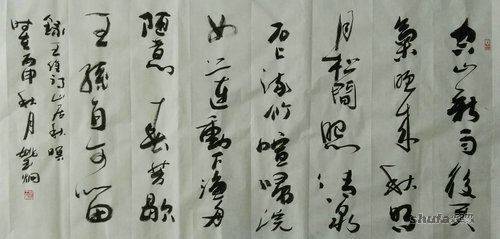 空山新雨後天
氣晚來秋明
月松間照清泉
石上流竹喧歸浣
女蓮動下漁舟
随意春芳歇
王孫自可留
錄王維詩山居秋暝
丙申秋月